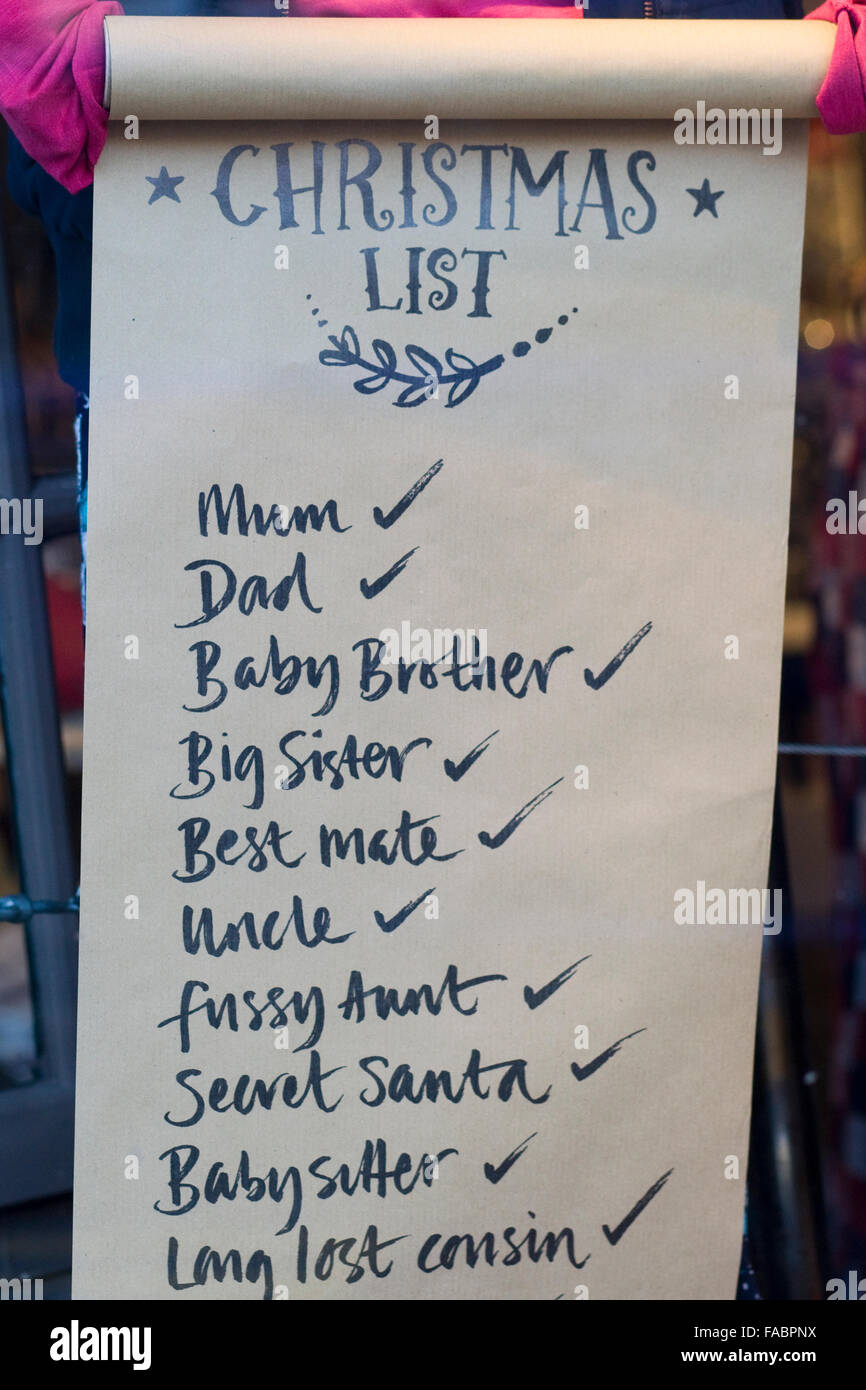 ★ CHRISTMAS ★
LIST
Mum ✓
Dad ✓
Baby Brother ✓
Big Sister ✓
Best mate ✓
Uncle ✓
fussy Aunt ✓
Secret Santa ✓
Babysitter ✓
Long lost cousin ✓
a
alamy
alamy
Image ID: FABPNX
www.alamy.com